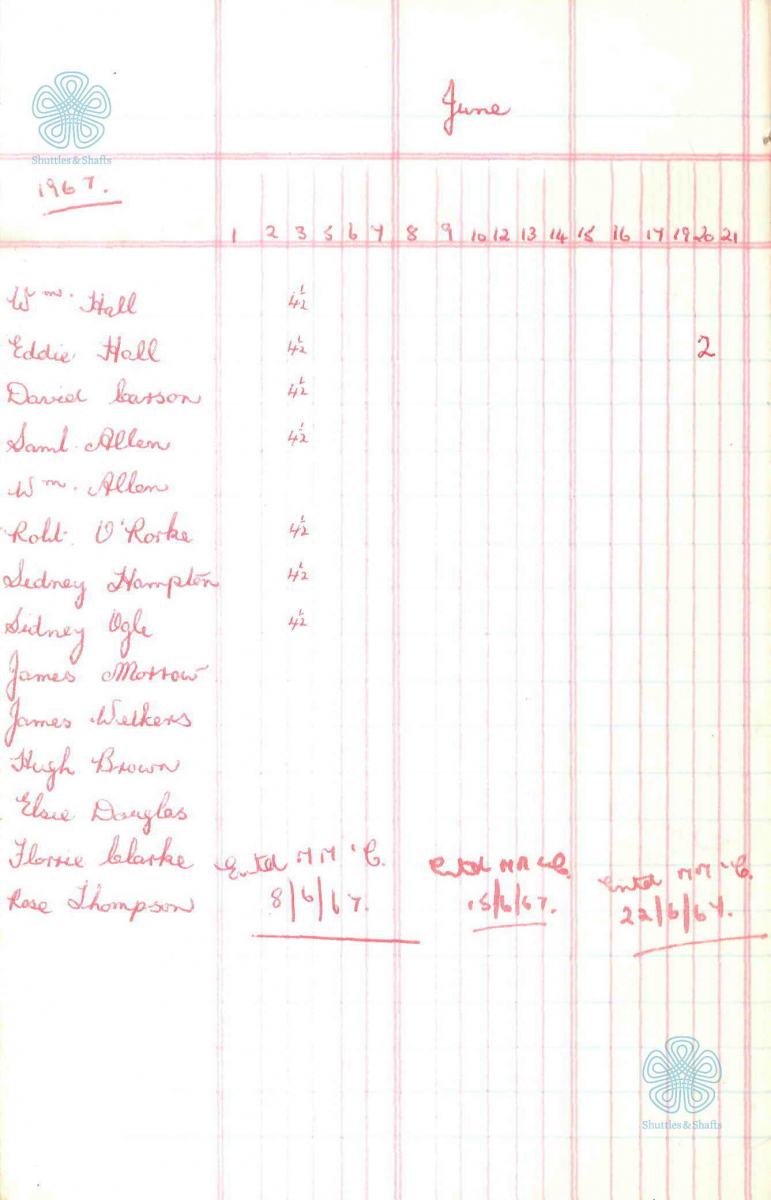 June
Shuttles & Shafts
1967.
1 2 3 5 6 7 8 9 10 12 13 14 15 16 17 19 20 21
Wm. Hall 4½
Eddie Hall 4½ 2
David Carson 4½
Saml. Allen 4½
Wm. Allen
Robt. O'Rorke 4½
Sidney Hampton 4½
Sidney Ogle 4½
James Morrow
James Welkers
Hugh Brown
Elsie Douglas
Florrie Clarke Entd MM 'C. Entd
Rose Thompson 8/6/67. 15/6/67. 22/6/67.
Entd MM 'C.
Shuttles & Shafts